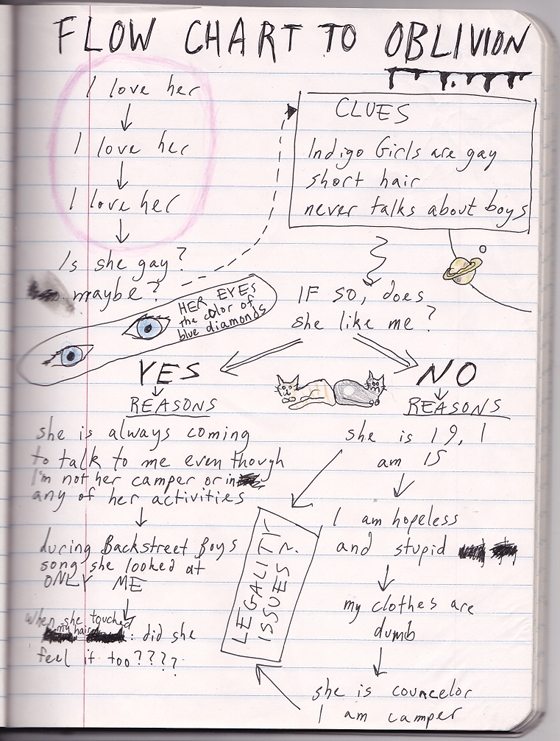 FLOW CHART TO OBLIVION
I love her
I love her
I love her
Is she gay?
maybe?
CLUES
Indigo Girls are gay
short hair
never talks about boys
HER EYES
the color of
blue diamonds
IF SO, does
she like me?
YES
REASONS
she is always coming
to talk to me even though
I'm not her camper or in
any of her activities
during Backstreet Boys
song she looked at
ONLY ME
when she touched
my hair: did she
feel it too????
NO
REASONS
she is 19, I
am 15
I am hopeless
and stupid
my clothes are
dumb
she is councelor
I am camper
LEGALITY
ISSUES